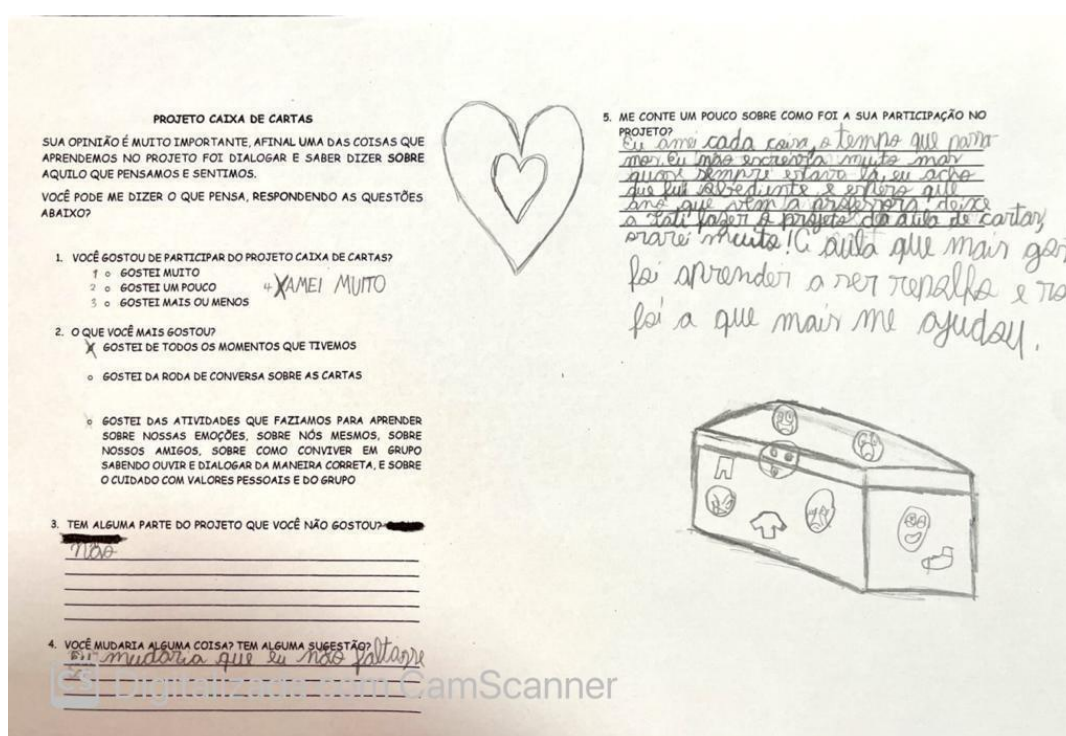 PROJETO CAIXA DE CARTAS
SUA OPINIÃO É MUITO IMPORTANTE, AFINAL UMA DAS COISAS QUE
APRENDEMOS NO PROJETO FOI DIALOGAR E SABER DIZER SOBRE
AQUILO QUE PENSAMOS E SENTIMOS.
VOCÊ PODE ME DIZER O QUE PENSA, RESPONDENDO AS QUESTÕES
ABAIXO?
1. VOCÊ GOSTOU DE PARTICIPAR DO PROJETO CAIXA DE CARTAS?
1 o GOSTEI MUITO
2 o GOSTEI UM POUCO
4 X AMEI MUITO
3 o GOSTEI MAIS OU MENOS
2. O QUE VOCÊ MAIS GOSTOU?
X GOSTEI DE TODOS OS MOMENTOS QUE TIVEMOS
o GOSTEI DA RODA DE CONVERSA SOBRE AS CARTAS
o GOSTEI DAS ATIVIDADES QUE FAZIAMOS PARA APRENDER
SOBRE NOSSAS EMOÇÕES, SOBRE NÓS MESMOS, SOBRE
NOSSOS AMIGOS, SOBRE COMO CONVIVER EM GRUPO
SABENDO OUVIR E DIALOGAR DA MANEIRA CORRETA, E SOBRE
O CUIDADO COM VALORES PESSOAIS E DO GRUPO
3. TEM ALGUMA PARTE DO PROJETO QUE VOCÊ NÃO GOSTOU?
Não
4. VOCÊ MUDARIA ALGUMA COISA? TEM ALGUMA SUGESTÃO?
Eu mudaria que eu não faltasse
CS Digitalizado com CamScanner
5. ME CONTE UM POUCO SOBRE COMO FOI A SUA PARTICIPAÇÃO NO
PROJETO?
Eu amei cada coisa, o tempo que passa
mos. Eu não escrevia muito mas
quase sempre estava lá, eu acho
que fui obediente e espero que
ano que vem a professora deixe
a Tati fazer o projeto da aula de cartas,
orarei muito! A aula que mais gos
foi aprender a ser repolho e
foi a que mais me ajudou.